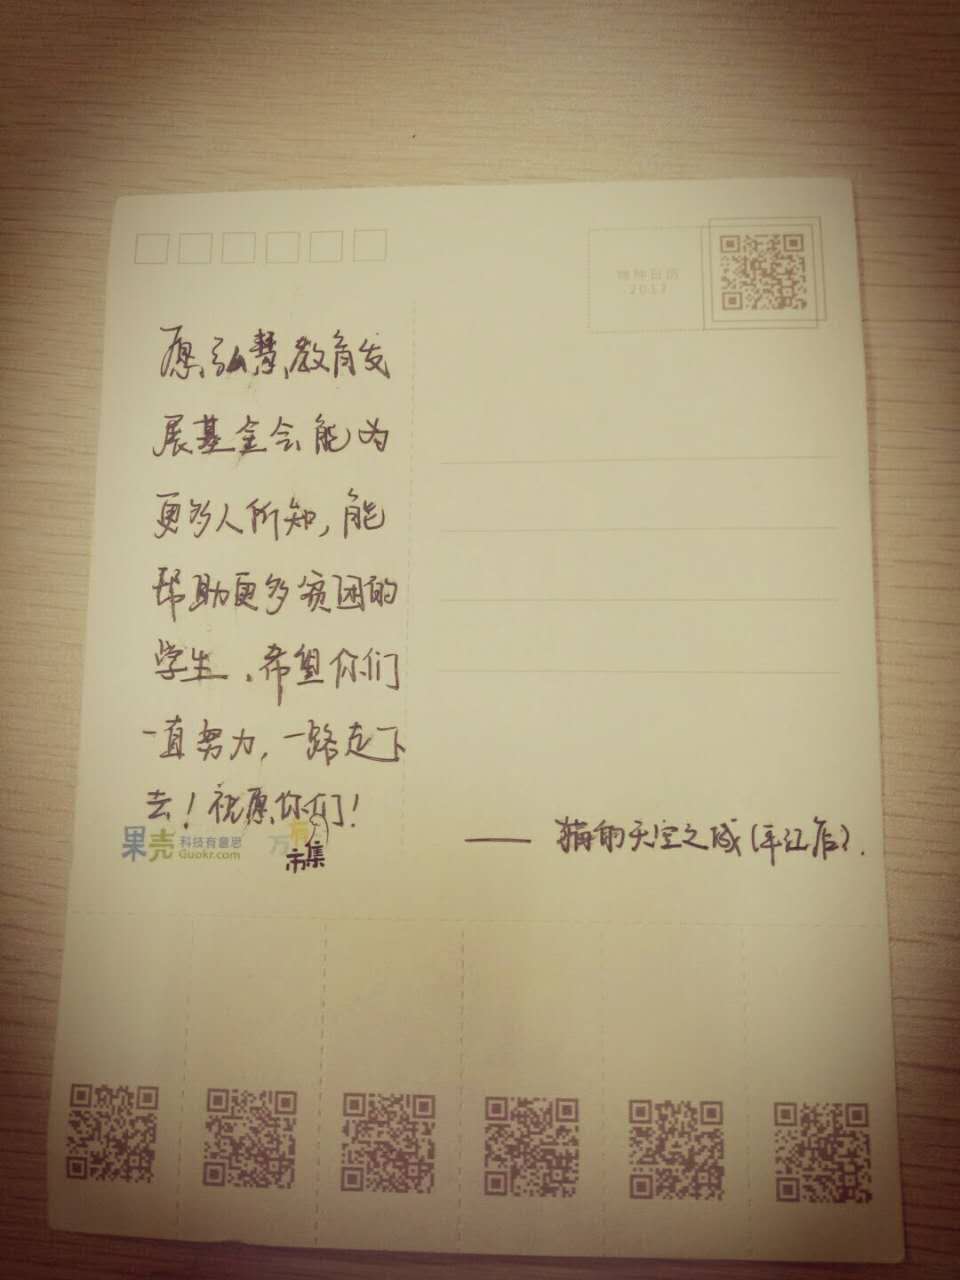 物种日历
2017
愿弘慧教育发
展基金会能为
更多人所知,能
帮助更多贫困的
学生.希望你们
一直努力,一路走下
去!祝愿你们!
果壳 科技有意思
Guokr.com
万有
市集
——猫的天空之城(平江店).